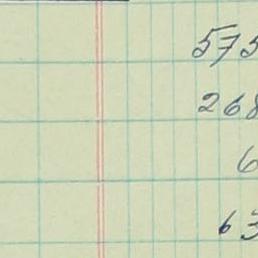 575
268
6
63